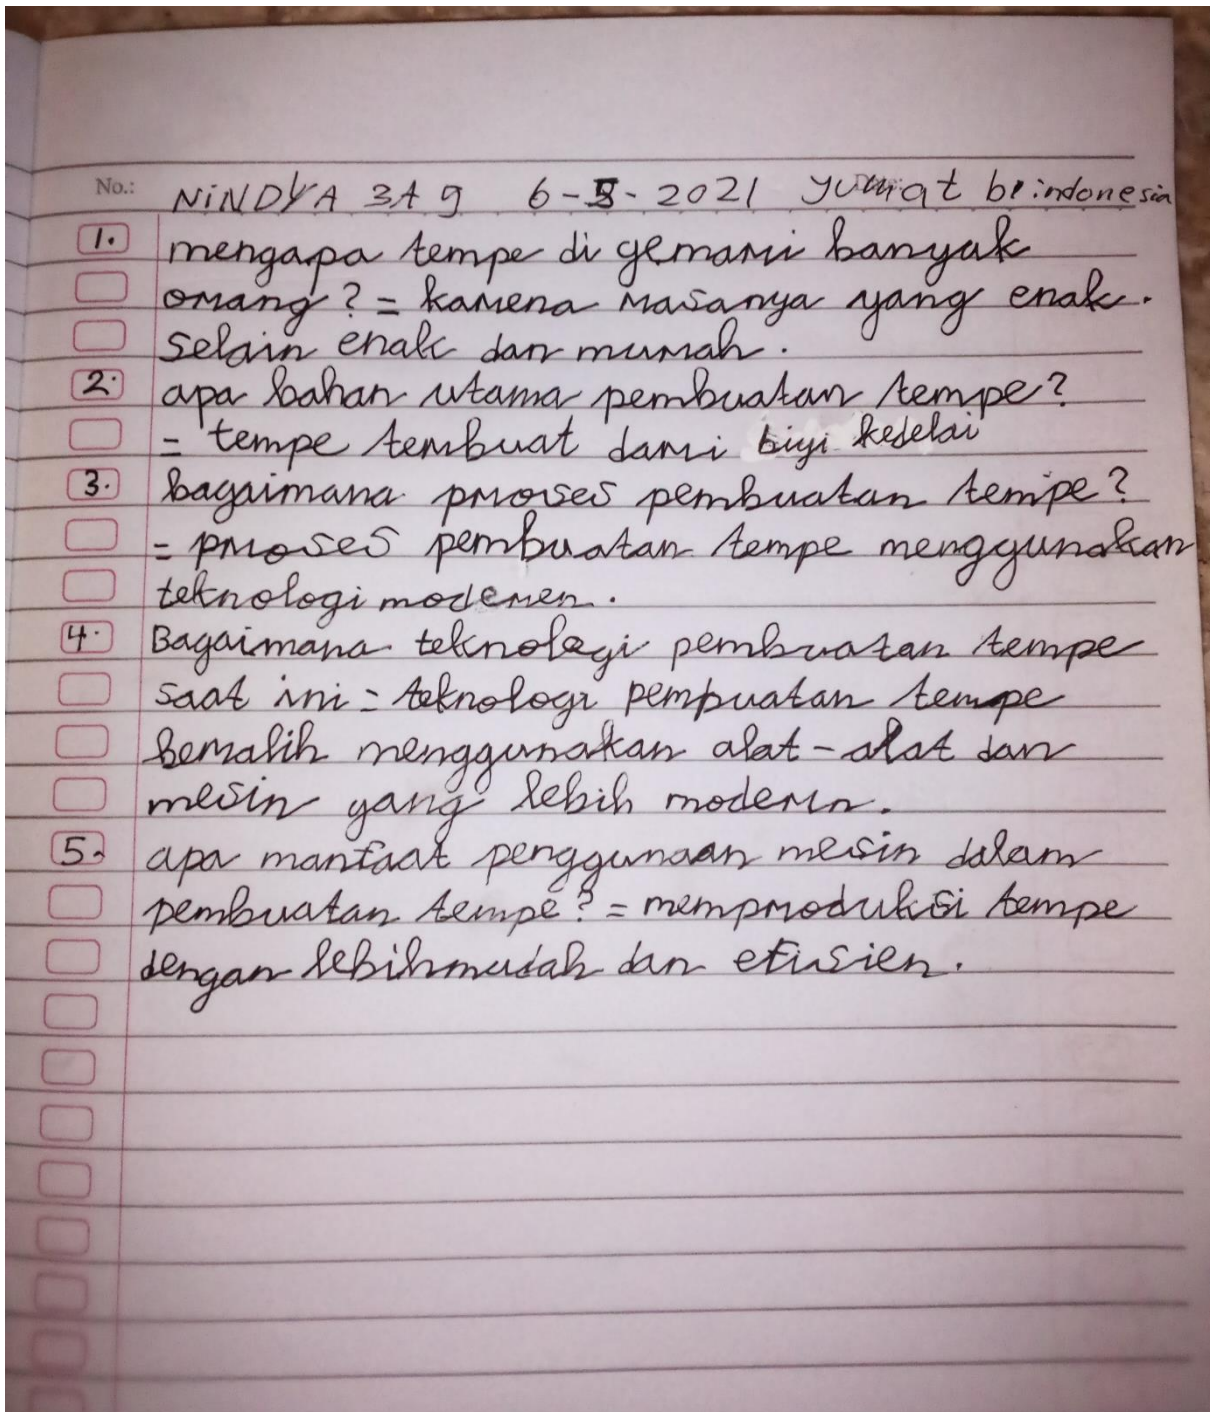 No.: NiNDYA 3A 9 6-8-2021 jumat b indonesia
1. mengapa tempe di gemari banyak
orang? = karena rasanya yang enak.
selain enak dan murah.
2. apa bahan utama pembuatan tempe?
= tempe terbuat dari biji kedelai
3. bagaimana proses pembuatan tempe?
= proses pembuatan tempe menggunakan
teknologi moderen.
4. Bagaimana teknologi pembuatan tempe
saat ini = teknologi pempuatan tempe
beralih menggunakan alat-alat dan
mesin yang lebih modern.
5. apa manfaat penggunaan mesin dalam
pembuatan tempe? = memproduksi tempe
dengan lebihmudah dan efisien.